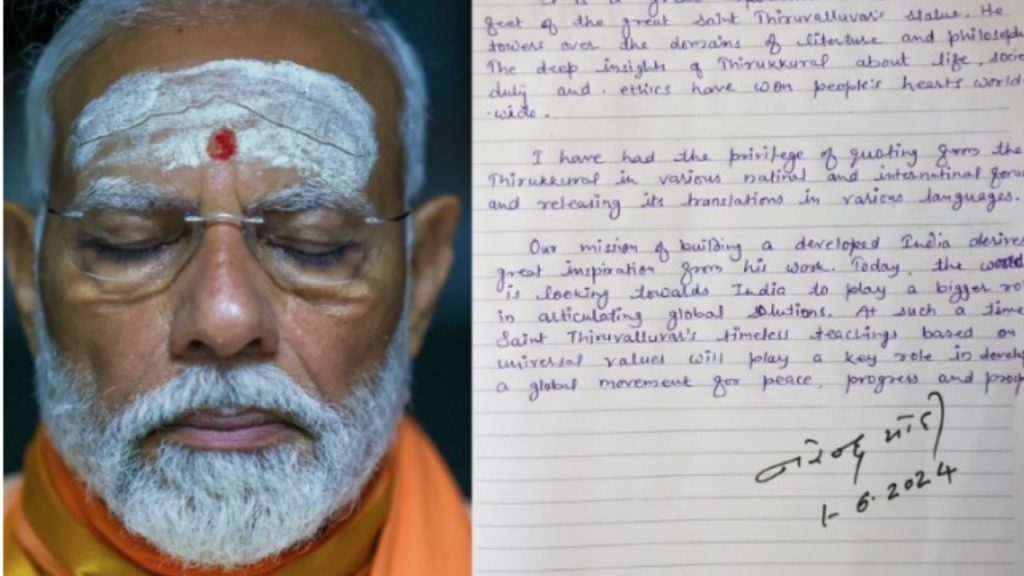 feet of the great saint Thiruvalluvar's statue. He
towers over the domains of literture and philosoph
The deep insights of Thirukkural about life, socie
duty and ethics have won people's hearts world
-wide.
I have had the privilege of quoting from the
Thirukkural in various natinal and internatinal foru
and releasing its translations in various languages.
Our mission of building a developed India derives
great inspiration from his work. Today, the world
is looking towards India to play a bigger ro
in articulating global solutions. At such a time
Saint Thiruvalluvar's timeless teachings based on
universal values will play a key role in develo
a global movement for peace, progress and prosp
नरेन्द्र मोदी
1-6.2024